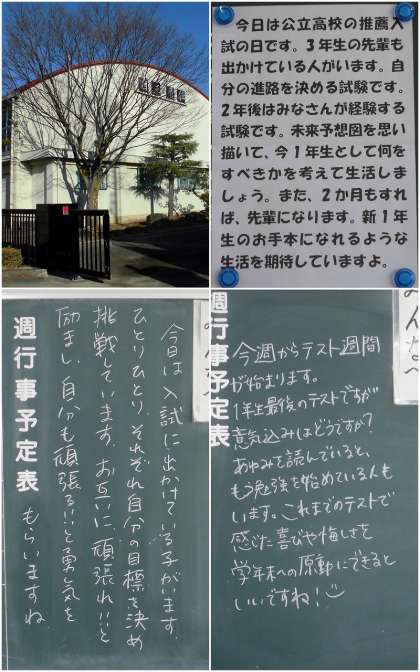 今日は公立高校の推薦入
試の日です。3年生の先輩も
出かけている人がいます。自
分の進路を決める試験です。
2年後はみなさんが経験する
試験です。未来予想図を思い
描いて、今1年生として何を
すべきかを考えて生活しま
しょう。また、2か月もすれ
ば、先輩になります。新1年
生のお手本になれるような
生活を期待していますよ。
今日は入試に出かけている子がいます。
ひとりひとり、それぞれ自分の目標を決め
挑戦しています。お互いに「頑張れ!!」と
励まし、自分も頑張るぞ!!と勇気を
もらいますね
週行事予定表
みんなへ
今週からテスト週間
が始まります。
1年生最後のテストですが
意気込みはどうですか?
あゆみを読んでいると、
もう勉強を始めている人も
います。これまでのテストで
感じた喜びや悔しさを
学年末への原動にできると
いいですね!
定表